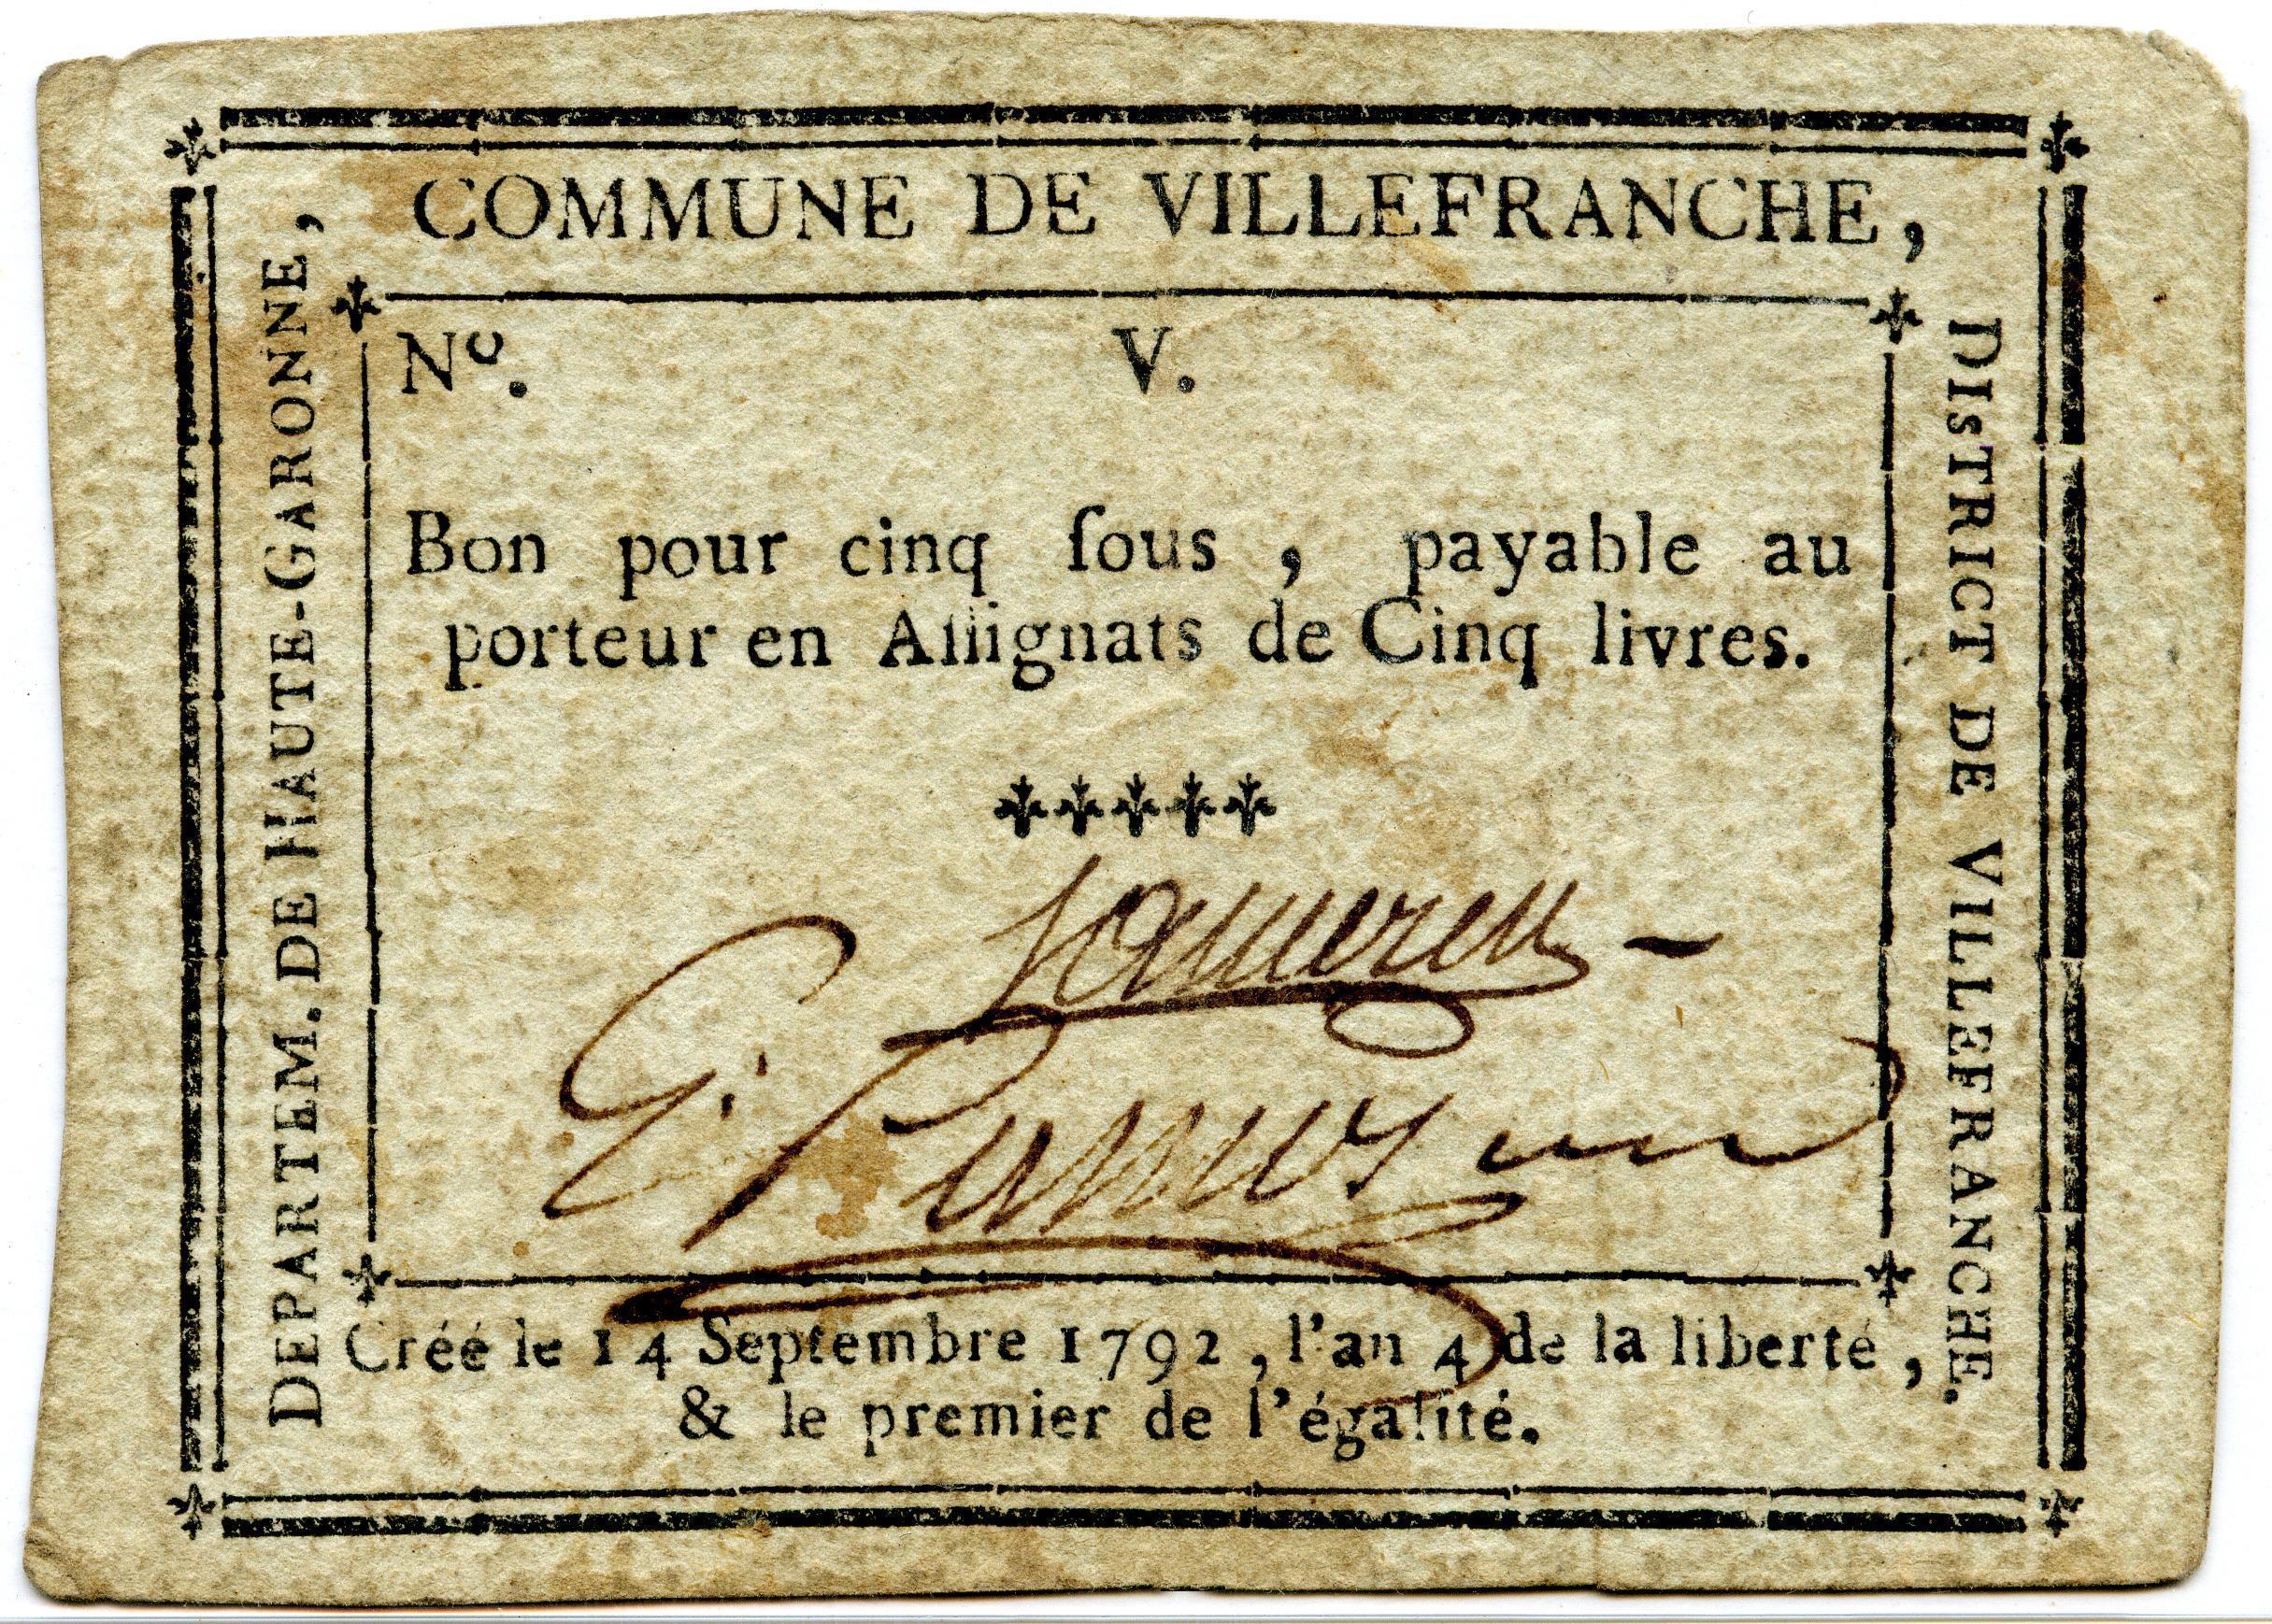 COMMUNE DE VILLEFRANCHE,
DEPARTEM. DE HAUTE-GARONNE,
DIsTRICT DE VILLEFRANCHE.
Nº. V.
Bon pour cinq ſous, payable au
porteur en Aſſignats de Cinq livres.
Créé le 14 Septembre 1792, l'an 4 de la liberté,
& le premier de l'égalité.